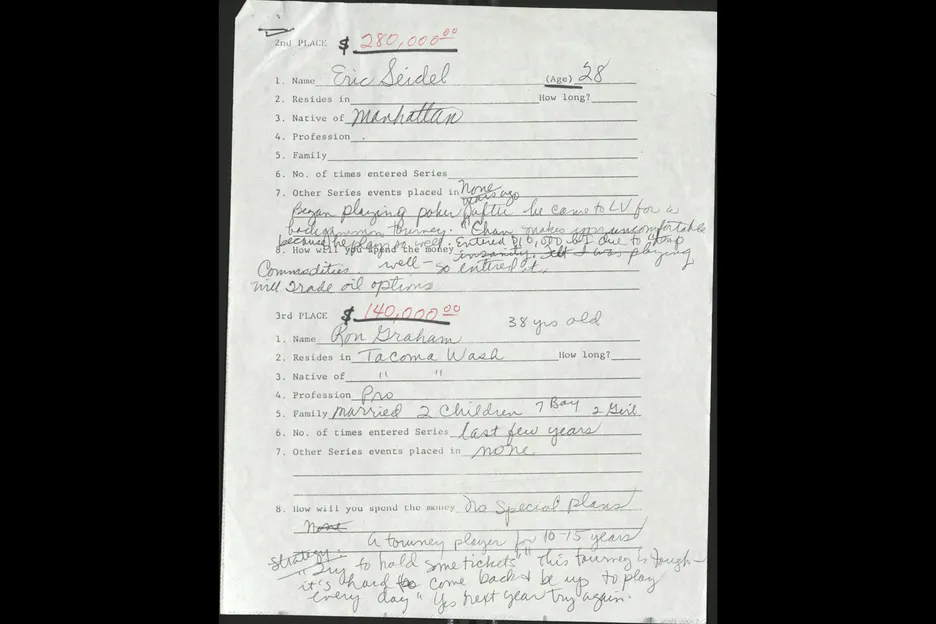 2nd PLACE $ 280,000.00
1. Name Eric Seidel (Age) 28
2. Resides in How long?
3. Native of Manhattan
4. Profession
5. Family
6. No. of times entered Series
7. Other Series events placed in None
years ago
Began playing poker after he came to LV for a
backgammon tourney. "Chan makes you uncomfortable
because he plays so well. Entered $10,000 due to "temp
8. How will you spend the money insanity. I was playing
Commodities. well - so entered it.
will Trade oil options
3rd PLACE $ 140,000.00 38 yrs old
1. Name Ron Graham
2. Resides in Tacoma Wash How long?
3. Native of " "
4. Profession Pro
5. Family married 2 Children 7 Boy 2 Girl
6. No. of times entered Series last few years
7. Other Series events placed in none
8. How will you spend the money No Special plans
None
A tourney player for 10-15 years
Strategy:
"Try to hold some tickets" "this tourney is tough-
it's hard to come back & be up to play
every day" Yes next year try again.